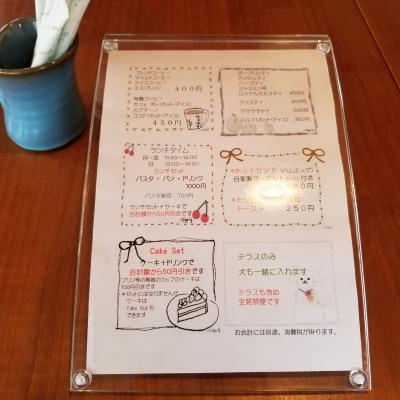 ブレンドコーヒー
マイルドコーヒー
アイスコーヒー
エスプレッソ 400円
有機コーヒー
カフェ オレ(ホット・アイス)
カプチーノ
ココア(ホット・アイス)
450円
ダージリンティ
アッサムティ
ハーブティ
ジャスミン茶
ロイヤルミルクティ 450円
アイスティ 400円
マサラチャイ 500円
ミルク(ホット・アイス) 350円
ランチタイム
月〜金 11:30〜14:00
日 13:00〜14:00
ランチセット
パスタ・パン・ドリンク
1000円
パスタ単品 700円
ランチセット+ケーキで
合計額から50円引きです
*ホットサンド(ハムエッグ)
自家製ヨーグルト 付き
トースト 250円
Cake Set
ケーキ+ドリンクで
合計額から50円引きです
プリン等の陶器のカップのケーキは
100円引きです
*セットにはなりませんが
ケーキは
Take Outも
できます
テラスのみ
犬も一緒に入れます
テラスも含め
全席禁煙です
お会計には別途、消費税が掛ります。